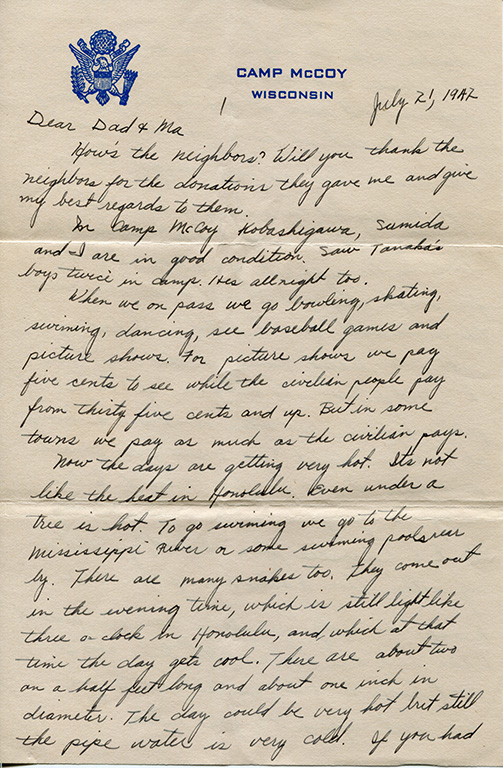 CAMP McCOY
WISCONSIN
1
July 21, 1942
Dear Dad & Ma
How's the neighbors? Will you thank the
neighbors for the donations they gave me and give
my best regards to them.
In Camp McCoy Kobashigawa, Sumida
and I are in good condition. Saw Tanaka's
boys twice in camp. Hes all right too.
When we on pass we go bowling, skating,
swiming, dancing, see baseball games and
picture shows. For picture shows we pay
five cents to see while the civilian people pay
from thirty five cents and up. But in some
towns we pay as much as the civilian pays.
Now the days are getting very hot. Its not
like the heat in Honolulu. Even under a
tree is hot. To go swiming we go to the
Mississippi River or some swiming pools near
by. There are many snakes too. They come out
in the evening time, which is still light like
three o-clock in Honolulu, and which at that
time the day gets cool. There are about two
an a half feet long and about one inch in
diameter. The day could be very hot but still
the pipe water is very cold. If you had